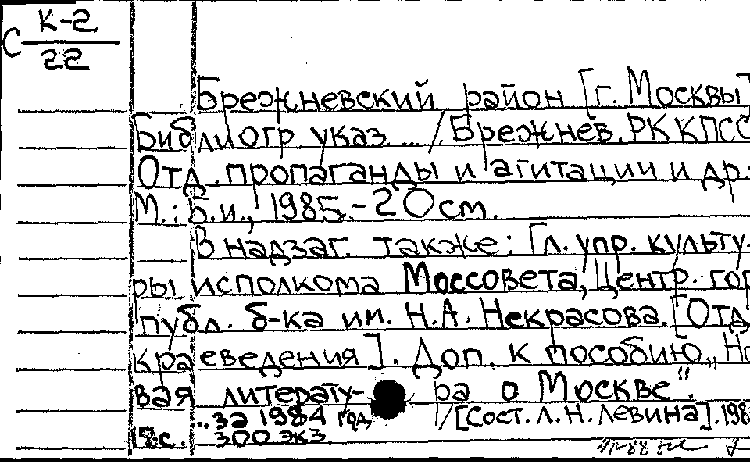 С К-2
22
Брежневский район [г. Москвы]
Библиогр указ ... / Брежнев. РК КПСС
Отд. пропаганды и агитации и др.-
М.: Б.и., 1985.-20 см.
В надзаг. также: Гл. упр. культу-
ры исполкома Моссовета, Центр. гор
публ. б-ка им. Н.А. Некрасова. [Отд
краеведения]. Доп. к пособию „Но
вая литерату- ра о Москве".
...за 1984 год /[Сост. Л.Н. Левина]. 198
18с. 300 экз